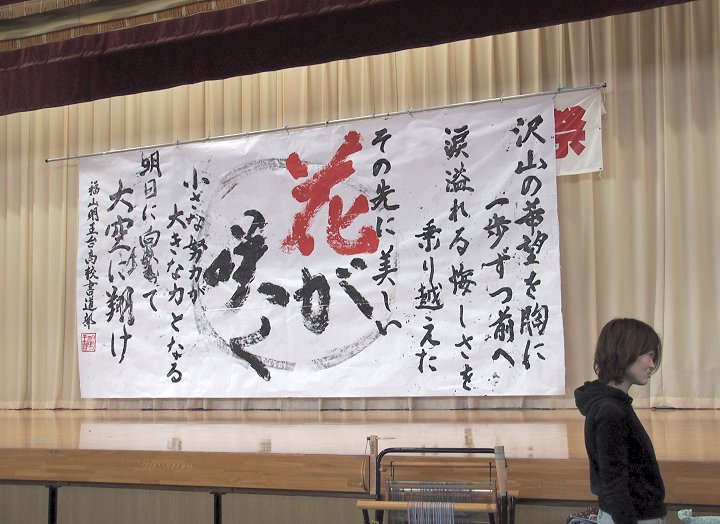 祭
沢山の希望を胸に
一歩ずつ前へ
涙溢れる悔しさを
乗り越えた
その先に美しい
花が
咲く
小さな努力が
大きな力となる
明日に向って
大空に翔け
福山明王台高校書道部